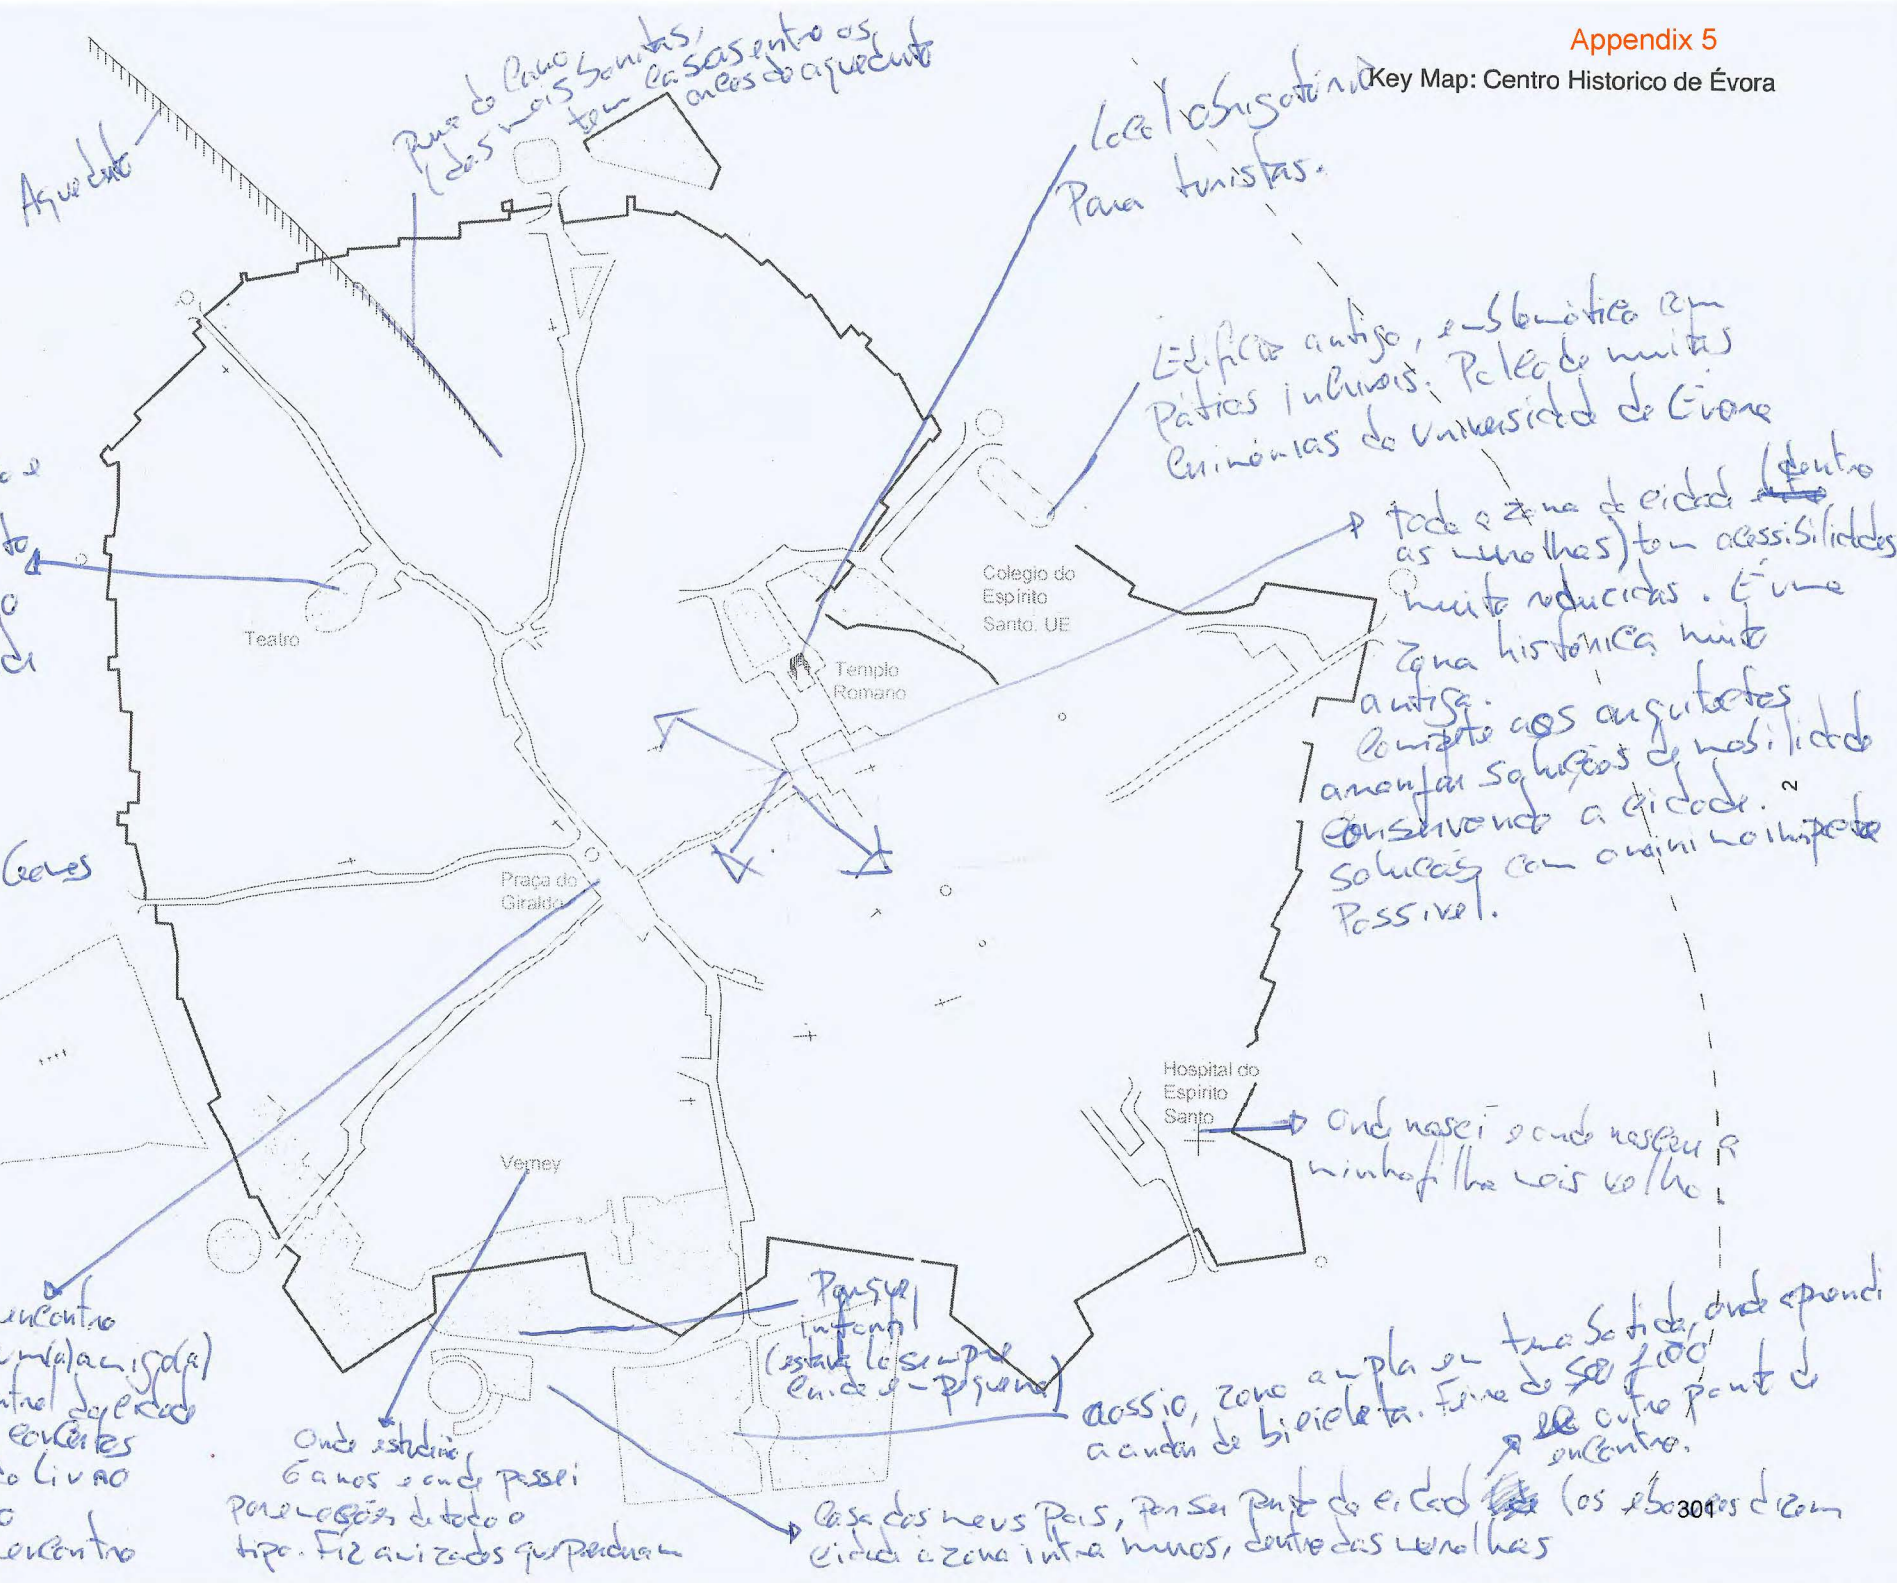 Appendix 5
Key Map: Centro Historico de Évora
Aqueduto
Rua do Cano
(das mais bonitas,
tem casas entre os
arcos do aqueduto
Local obrigatório
Para turistas.
Edifício antigo, emblemático com
Pátios incríveis. Palco de muitas
Cerimónias da Universidade de Évora
toda a zona da cidade (dentro
as muralhas) tem acessibilidades
muito reduzidas. É uma
zona histórica muito
antiga.
Compete aos arquitetos
arranjar soluções de mobilidade
conservando a cidade.
soluções com o minimo impacto
Possivel.
2
Colegio do
Espírito
Santo. UE
Teatro
Templo
Romano
Praça do
Giraldo
Hospital do
Espírito
Santo
Onde nasci e onde nasceu a
minha filha mais velha.
Verney
Parque
infantil
(estava lá sempre
em pequena)
Rossio, zona ampla em terra batida, onde aprendi
a andar de bicicleta. Feira de São João
outro ponto de
encontro.
encontro
um(a) amigo(a)
da cidade
concertos
do Livro
encontro
Onde estudei
6 anos e onde passei
por emoções de todo o
tipo. Fiz amizades que perduram
Casa dos meus Pais, Por ser perto da cidade (os eborenses dizem
cidade a zona intra muros, dentro das muralhas
301